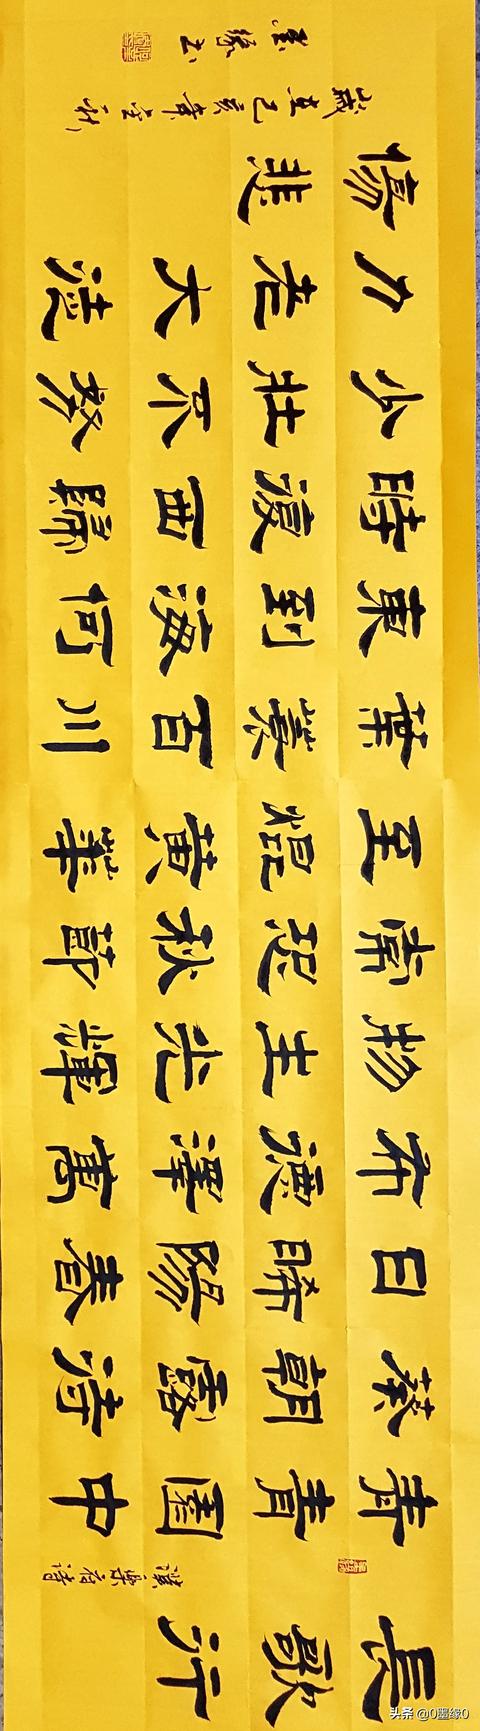 長歌行
漢樂府詩
青青園中
葵朝露待
日晞陽春
布德澤萬
物生光輝
常恐秋節
至焜黃華
葉衰百川
東到海何
時復西歸
少壯不努
力老大徒
傷悲
歲在己亥年金秋
墨緣書
头条 @0墨缘0